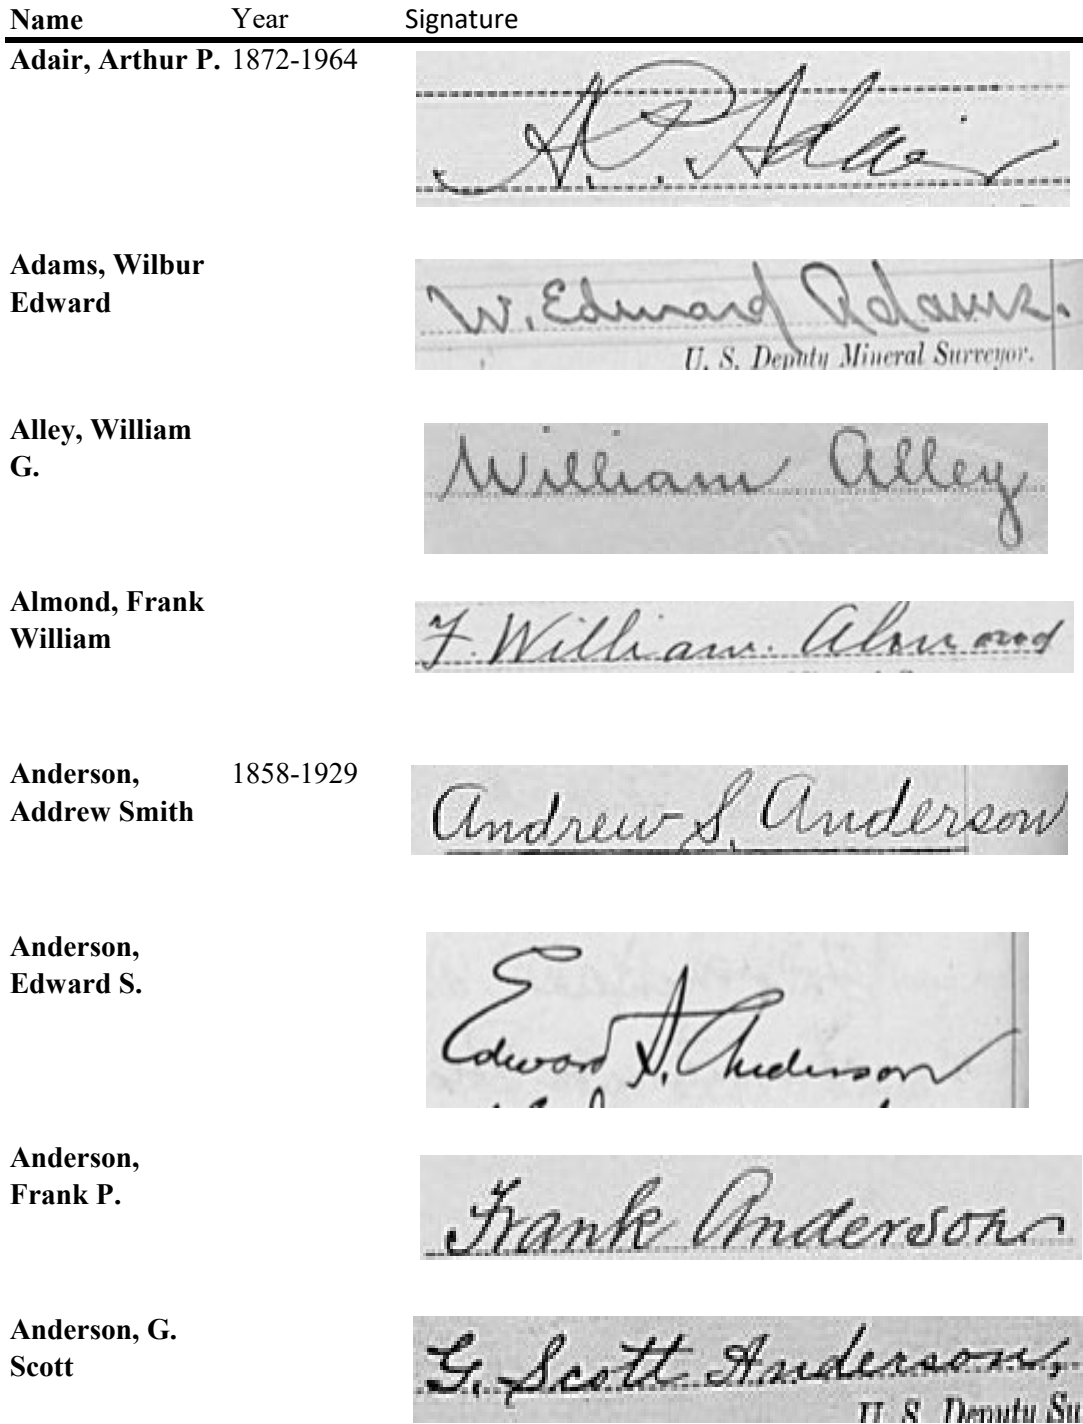 Name Year Signature
Adair, Arthur P. 1872-1964
A. P. Adair
Adams, Wilbur
Edward
W. Edward Adams.
U. S. Deputy Mineral Surveyor.
Alley, William
G.
William Alley
Almond, Frank
William
F. William. Almond
Anderson, 1858-1929
Addrew Smith
Andrew S. Anderson
Anderson,
Edward S.
Edward S. Anderson
Anderson,
Frank P.
Frank Anderson
Anderson, G.
Scott
G. Scott Anderson,
U. S. Deputy Su